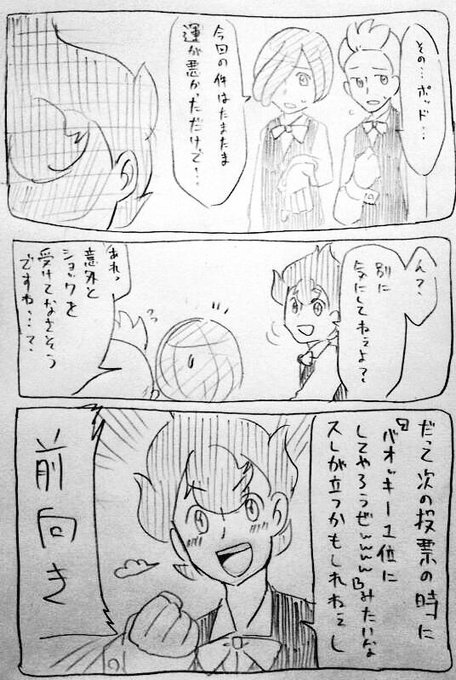 その…ポッド…
今回の件はたまたま
運が悪かっただけで…
ん?
別に
気にしてねぇよ?
あれっ
意外と
ショックを
受けてなさそう
ですね…?
だって次の投票の時に
『バオッキー1位に
してやろうぜwww』みたいな
スレが立つかもしれねぇし
前向き